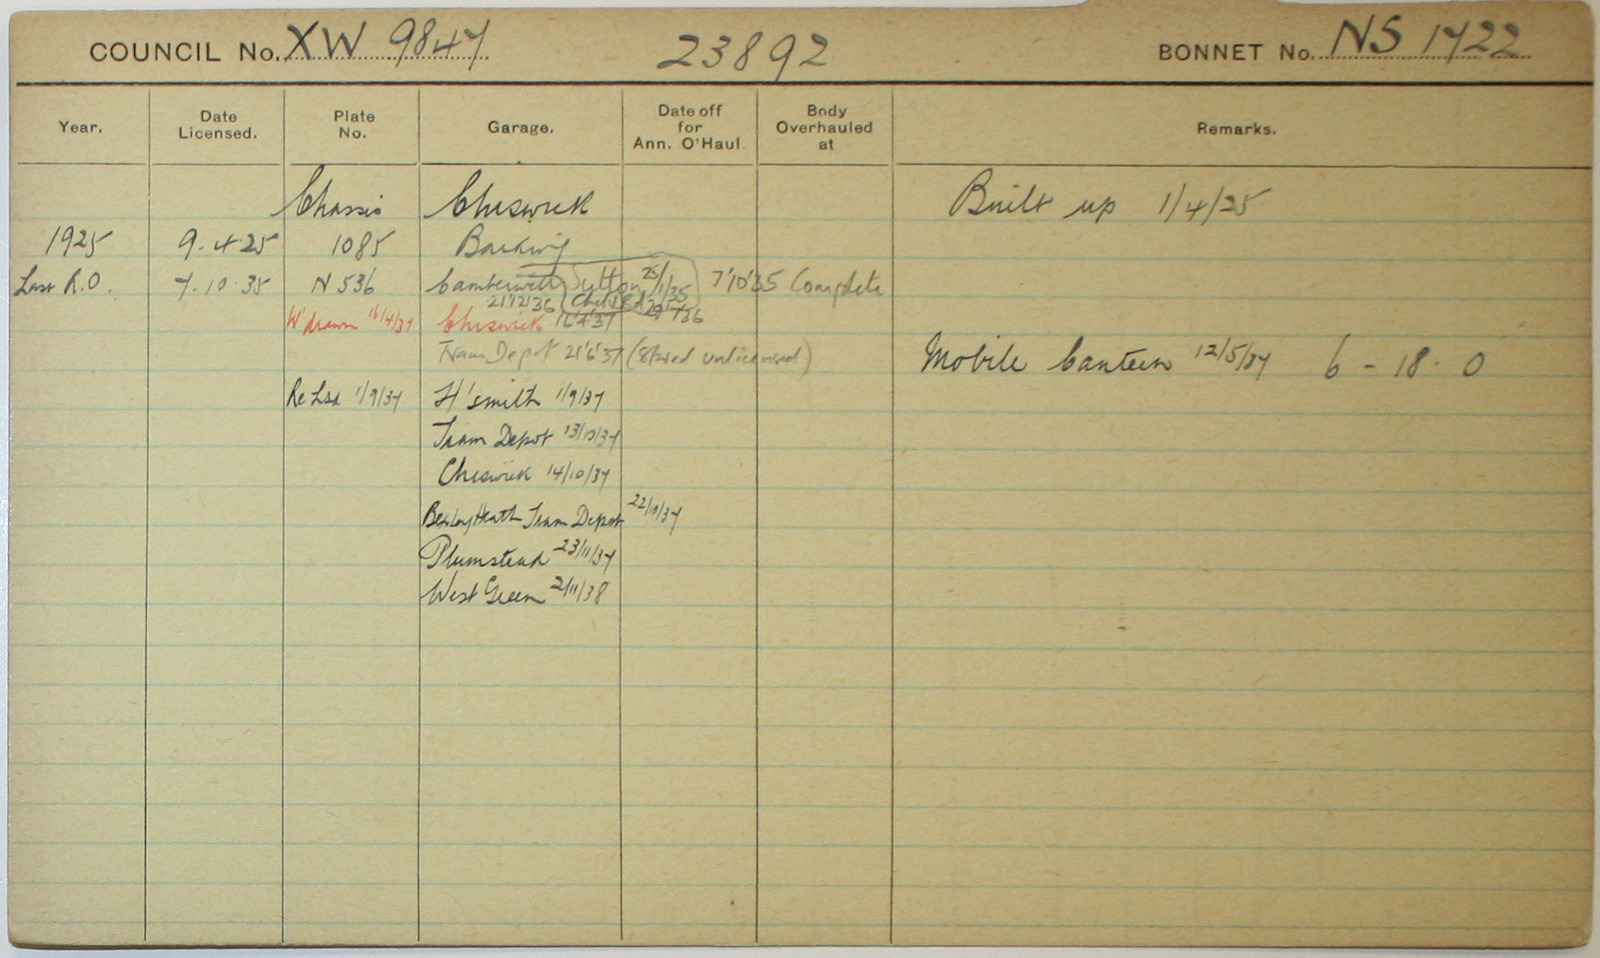 COUNCIL No. XW 9847 23892 BONNET No. NS 1722
Year. Date Licensed. Plate No. Garage. Date off for Ann. O'Haul. Body Overhauled at Remarks.
Chassis Chiswick Built up 1/4/25
1925 9-4-25 1085 Barking
Last R.O. 7-10-35 N 536 Camberwell Sutton 25/1/35 7'10'35 Complete
21'12'36
W'drawn 16/4/37 Chiswick 16'4'37
Tram Depot 21'6'37 (Stored unlicensed) Mobile Canteen 12/5/37 6-18-0
Re Lsd 1/9/37 H'smith 1/9/37
Tram Depot 13/10/37
Chiswick 14/10/37
BexleyHeath Tram Depot 22/10/37
Plumstead 23/11/37
West Green 2/11/38